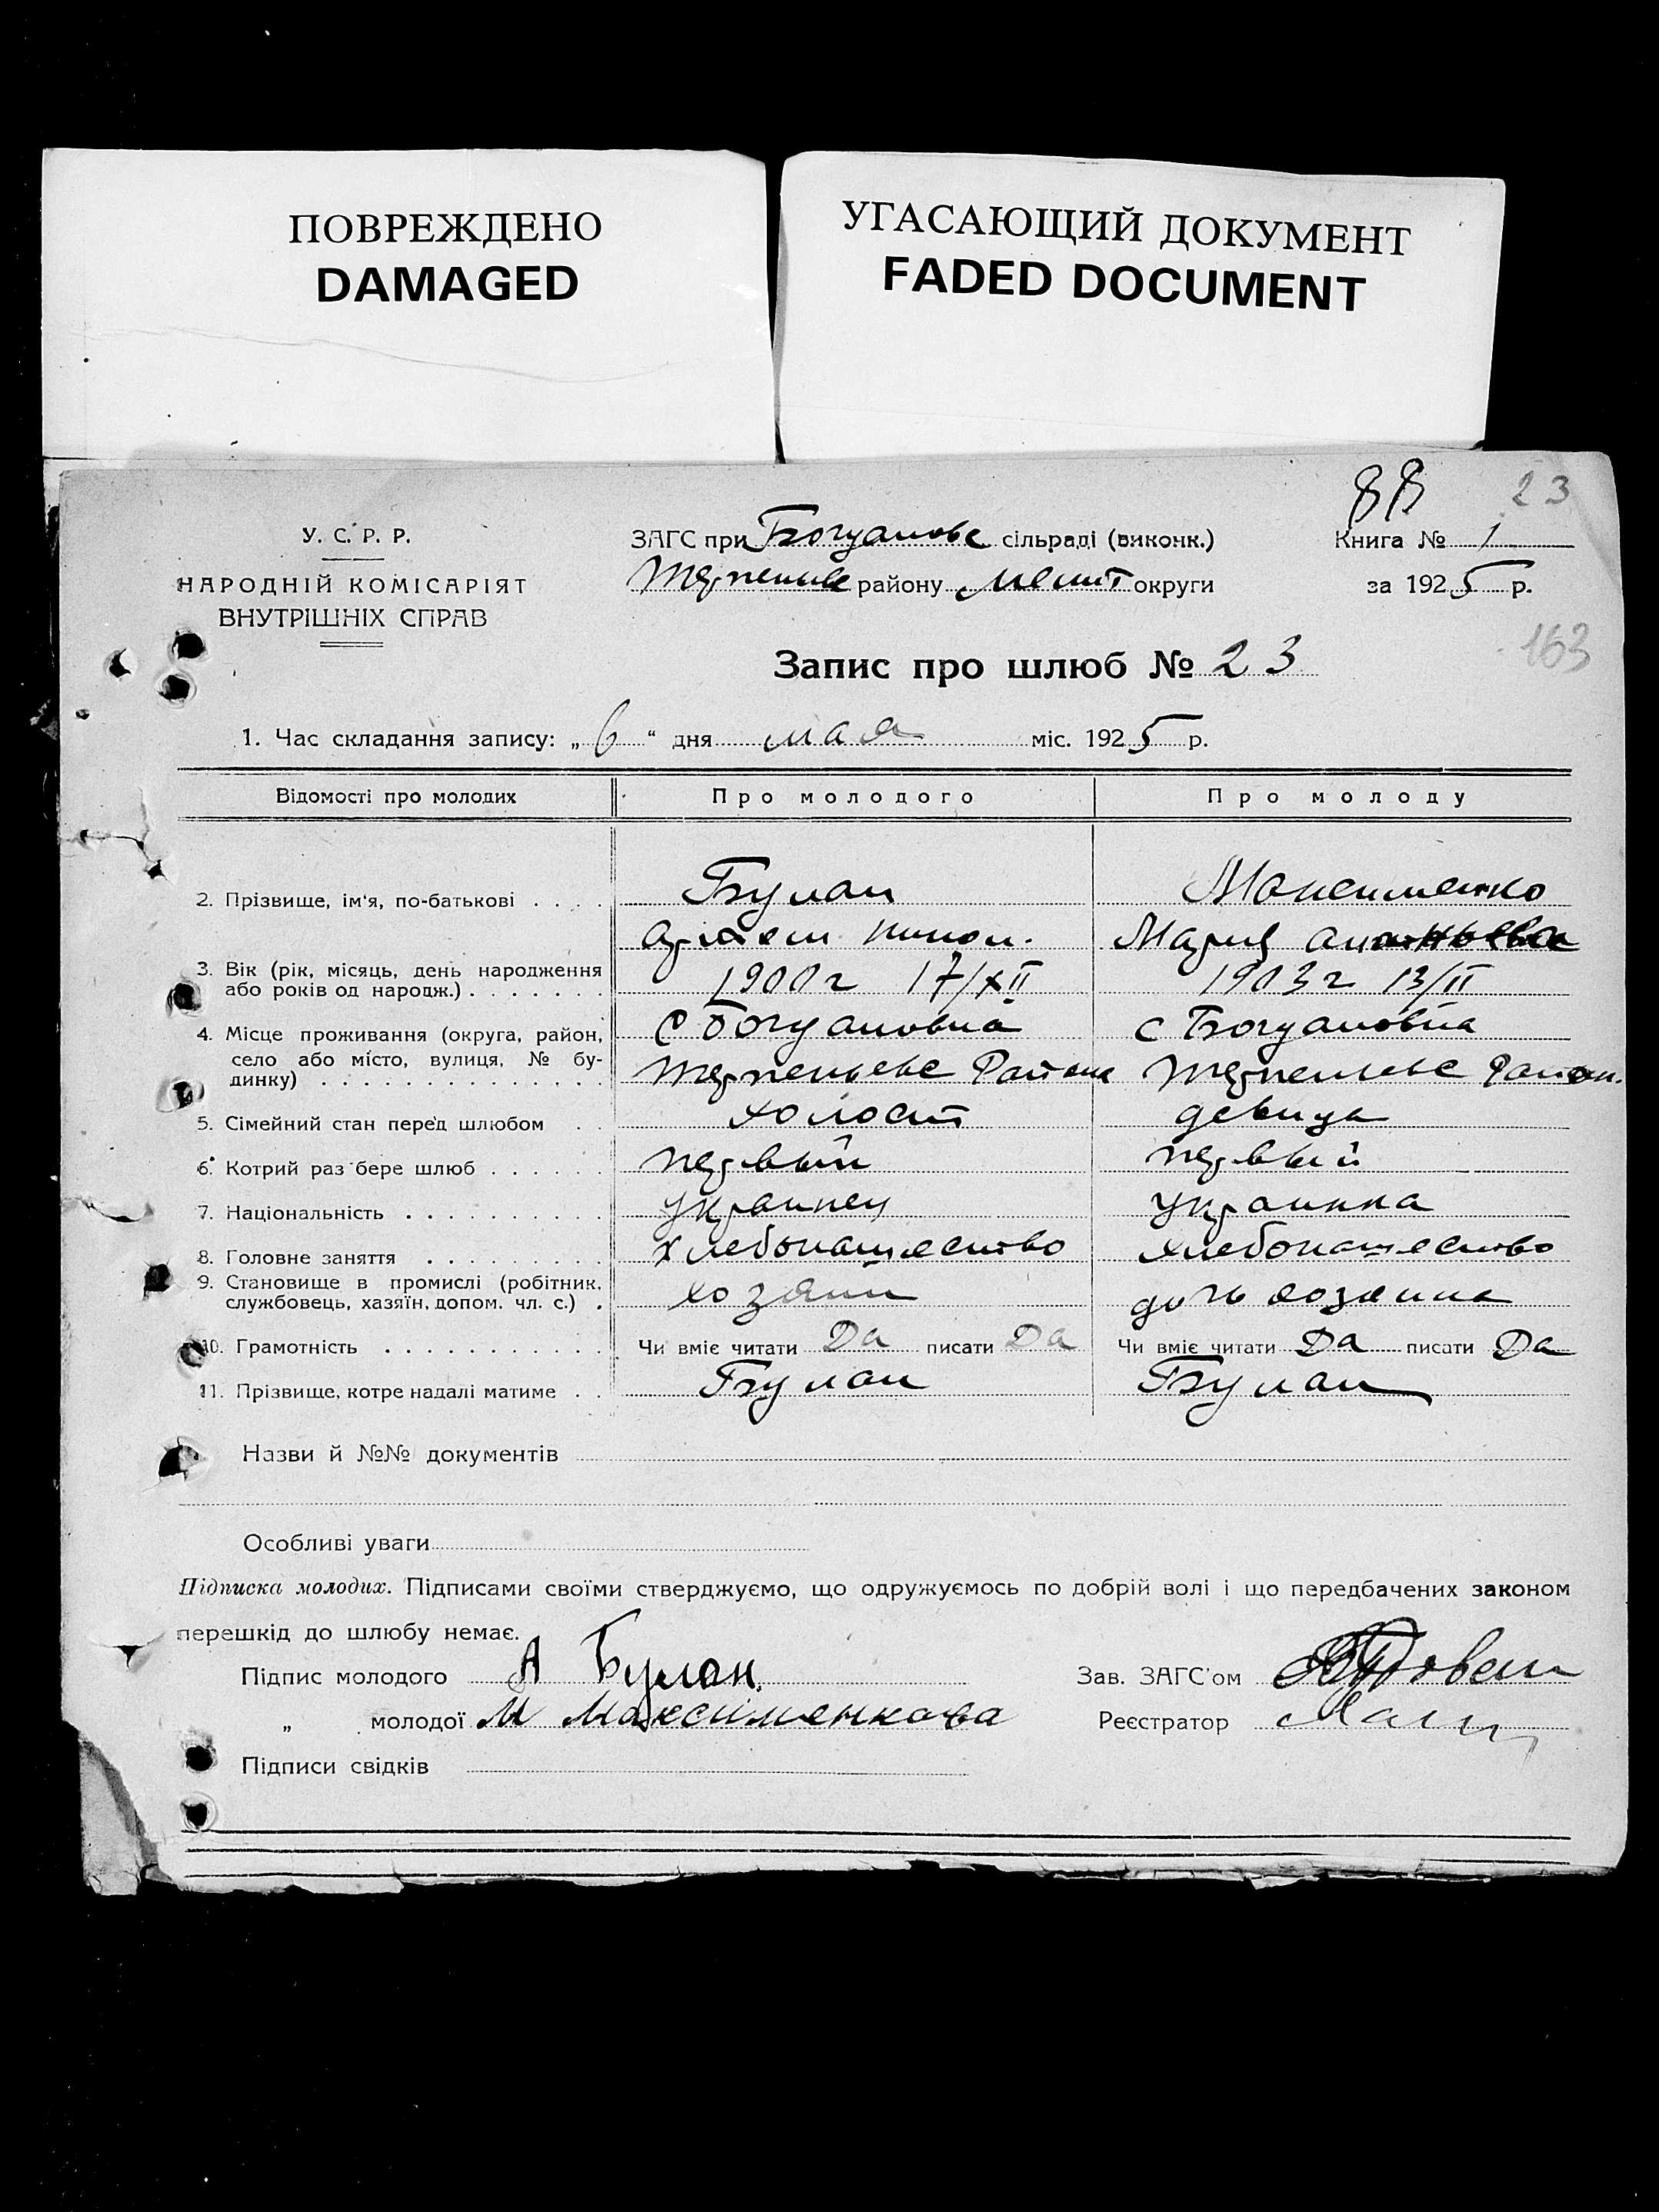 ПОВРЕЖДЕНО
DAMAGED
УГАСАЮЩИЙ ДОКУМЕНТ
FADED DOCUMENT
88 23
У. С. Р. Р.
НАРОДНІЙ КОМІСАРІЯТ
ВНУТРІШНІХ СПРАВ
ЗАГС при Богдановс сільраді (виконк.)
Терпеньев району Мелит округи
Книга № 1
за 1925 р.
163
Запис про шлюб № 23
1. Час складання запису: „ 6 “ дня мая міс. 1925 р.
Відомості про молодих Про молодого Про молоду
2. Прізвище, ім'я, по-батькові . . . . Булан Максименко
Артем Мария
3. Вік (рік, місяць, день народження
або років од народж.) . . . . . . . 1900 г 17/XII 1903 г 13/II
4. Місце проживання (округа, район,
село або місто, вулиця, № бу-
динку) . . . . . . . . . . . . . .
с Богдановка с Богдановка
Терпеньевс Района Терпеньевс Район.
5. Сімейний стан перед шлюбом . . холост девица
6. Котрий раз бере шлюб . . . . . . первый первый
7. Національність . . . . . . . . . . украинец украинка
8. Головне заняття . . . . . . . . . хлебопашество хлебопашество
9. Становище в промислі (робітник,
службовець, хазяїн, допом. чл. с.) . хозяин дочь хозяина
10. Грамотність . . . . . . . . . . . Чи вміє читати Да писати Да Чи вміє читати Да писати Да
11. Прізвище, котре надалі матиме . . Булан Булан
Назви й №№ документів
Особливі уваги
Підписка молодих. Підписами своїми стверджуємо, що одружуємось по добрій волі і що передбачених законом
перешкід до шлюбу немає.
Підпис молодого А Булан.
„ молодої М Максименкова
Підписи свідків
Зав. ЗАГС'ом
Реєстратор